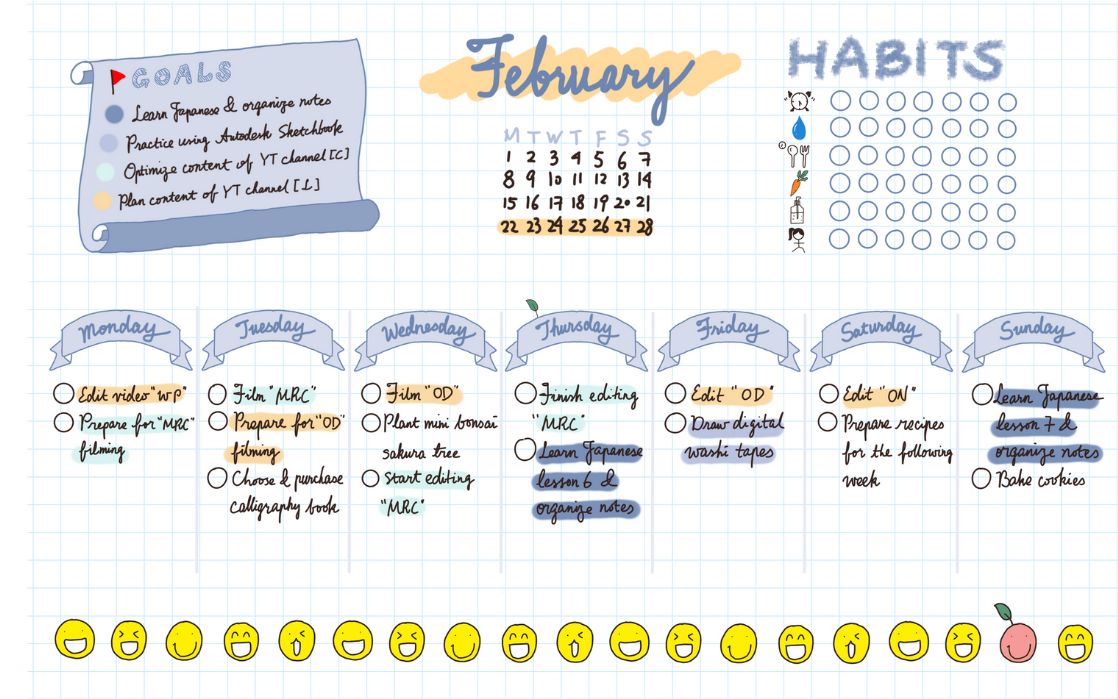 GOALS
Learn Japanese & organize notes
Practice using Autodesk Sketchbook
Optimize content of YT channel [C]
Plan content of YT channel [L]
February
M T W T F S S
1 2 3 4 5 6 7
8 9 10 11 12 13 14
15 16 17 18 19 20 21
22 23 24 25 26 27 28
HABITS
Monday
Edit video "WP"
Prepare for "MRC"
filming
Tuesday
Film "MRC"
Prepare for "OD"
filming
Choose & purchase
calligraphy book
Wednesday
Film "OD"
Plant mini bonsai
sakura tree
Start editing
"MRC"
Thursday
Finish editing
"MRC"
Learn Japanese
lesson 6 &
organize notes
Friday
Edit "OD"
Draw digital
washi tapes
Saturday
Edit "ON"
Prepare recipes
for the following
week
Sunday
Learn Japanese
lesson 7 &
organize notes
Bake cookies